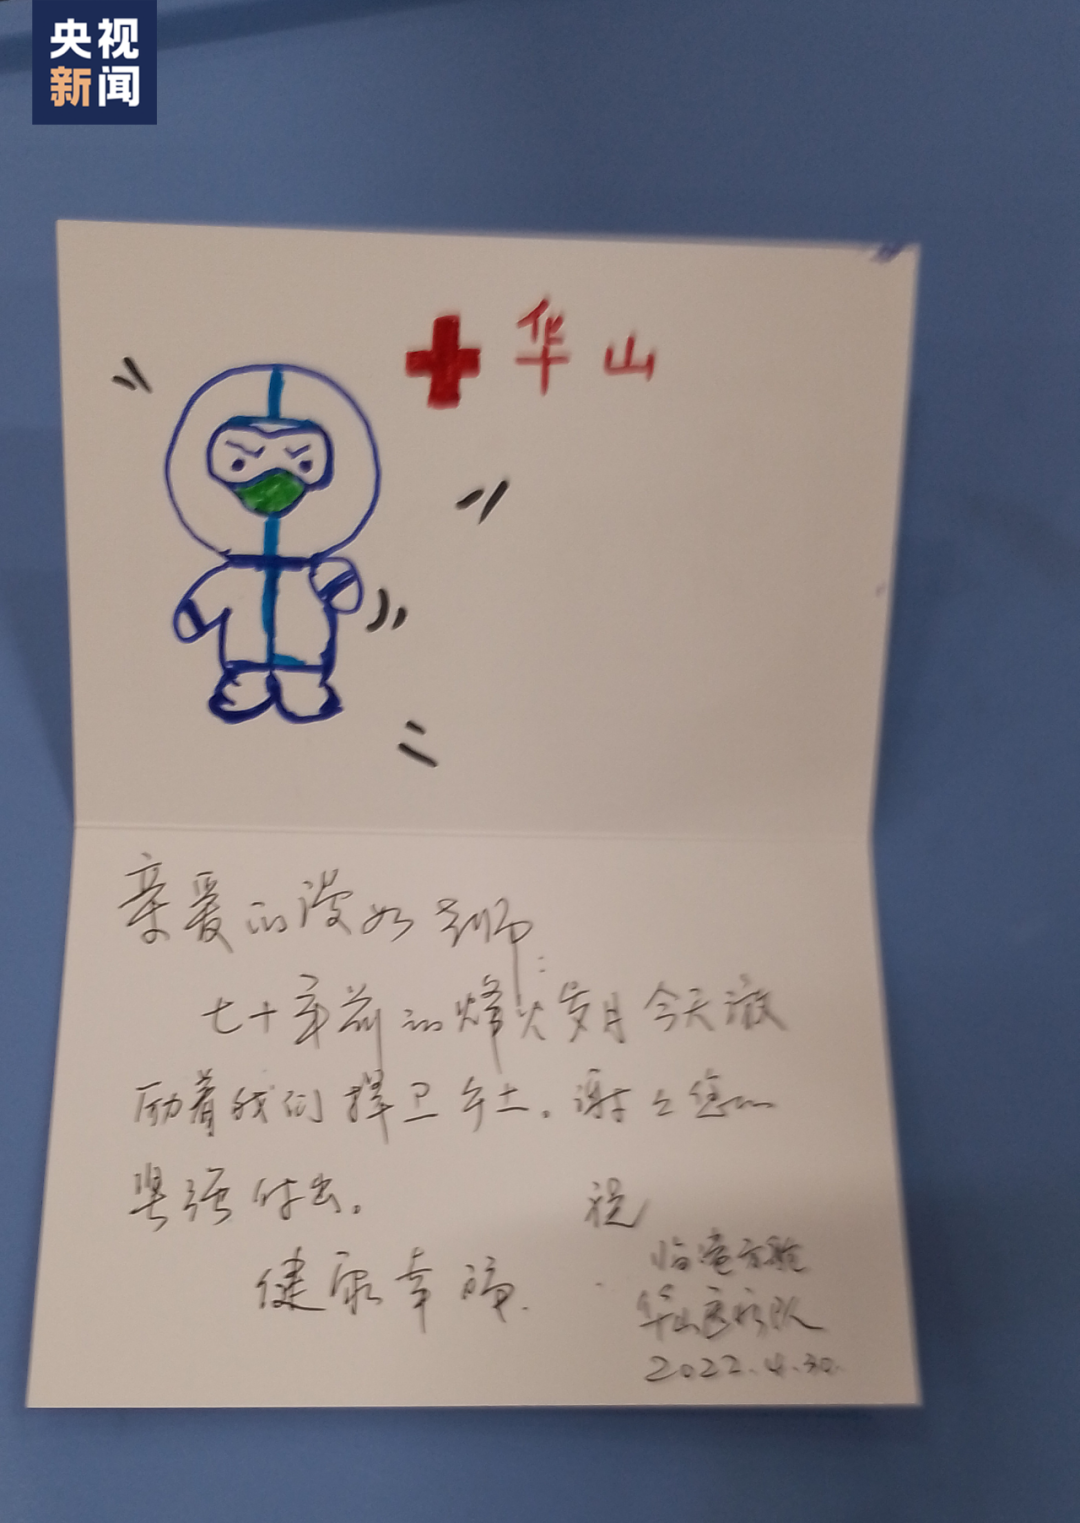 央视
新闻
华山
亲爱的漫如老师:
七十年前的烽火岁月今天激
励着我们捍卫乡土。谢谢您的
坚强付出。
祝
健康幸福.
临港方舱
华山医疗队
2022.4.30.